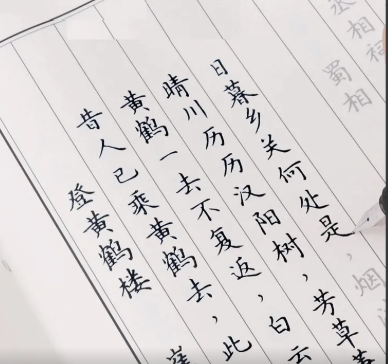 登黄鹤楼
昔人已乘黄鹤去，此
黄鹤一去不复返，白云
晴川历历汉阳树，芳草
日暮乡关何处是，烟
蜀相
丞相祠